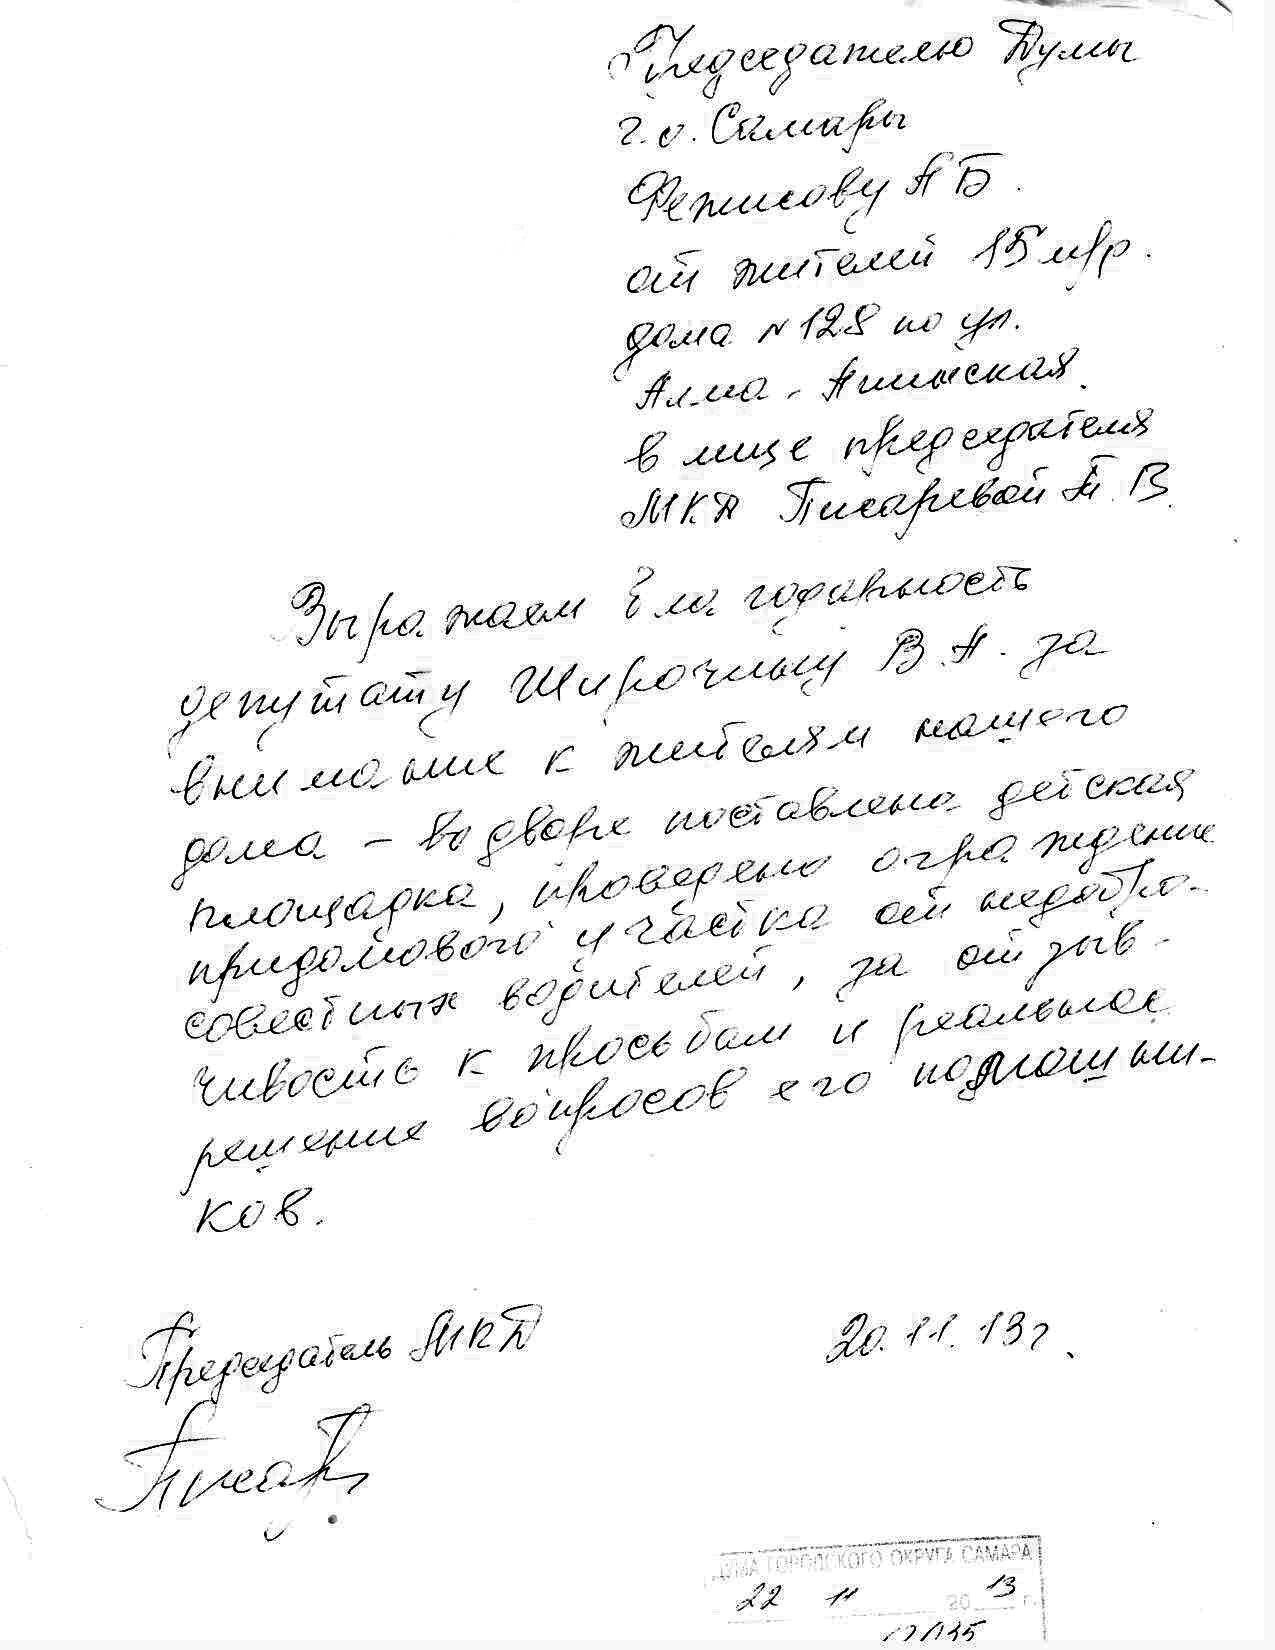 Председателю Думы
г.о. Самары
Фетисову А Б.
от жителей 15 м/р.
дома № 128 по ул.
Алма-Атинская.
в лице председателя
МКД Писаревой Т. В.
Выражаем благодарность
депутату Широчину В. А. за
внимание к жителям нашего
дома – во дворе поставлена детская
площадка, проведено ограждение
придомового участка от недобро-
совестных водителей, за отзыв-
чивость к просьбам и реальное
решение вопросов его помощни-
ков.
Председатель МКД
20.11.13 г.
Писар
ДУМА ГОРОДСКОГО ОКРУГА САМАРА
22 11 2013 г.